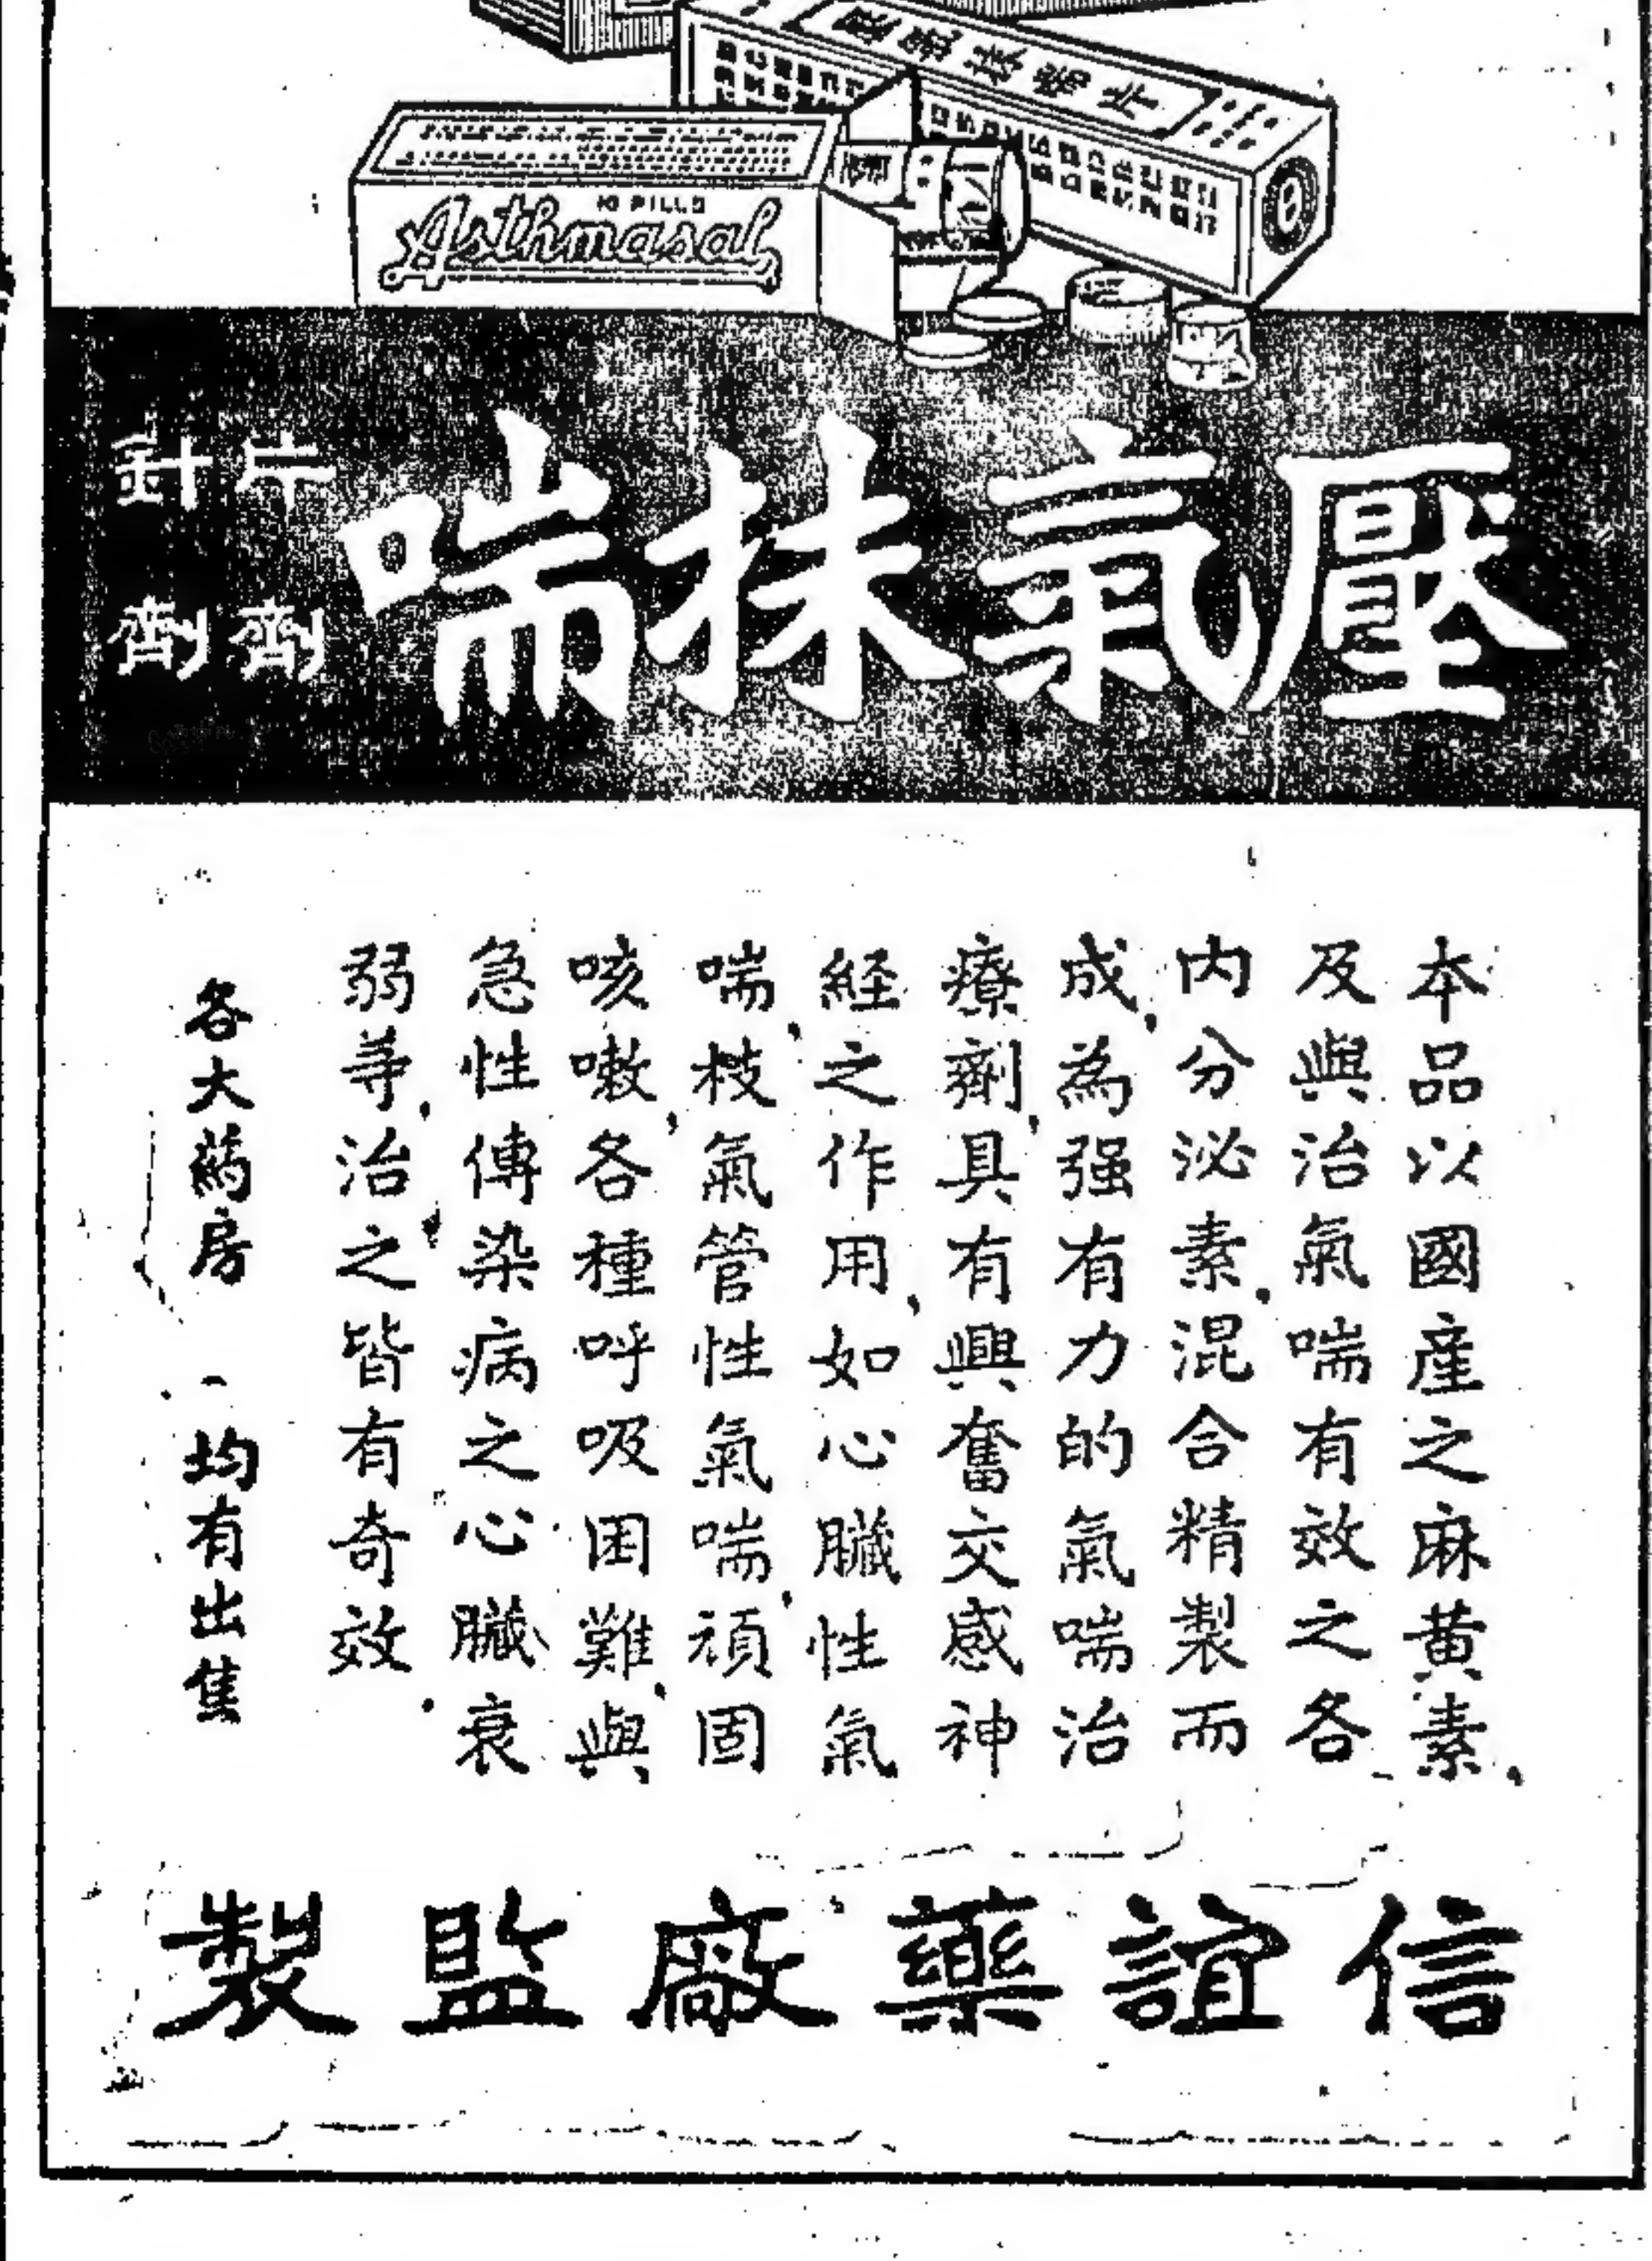 10 PILLS
Asthmasal
壓氣抹喘
片劑
針劑
本品以國產之麻黄素，
及與治氣喘有效之各
内分泌素，混合精製而
成，為强有力的氣喘治
療劑，具有興奮交感神
経之作用，如心臟性氣
喘，枝氣管性氣喘，頑固
咳嗽，各種呼吸困難，與
急性傳染病之心臟衰
弱等，治之皆有奇效．
各大藥房 均有出售
信誼藥廠監製